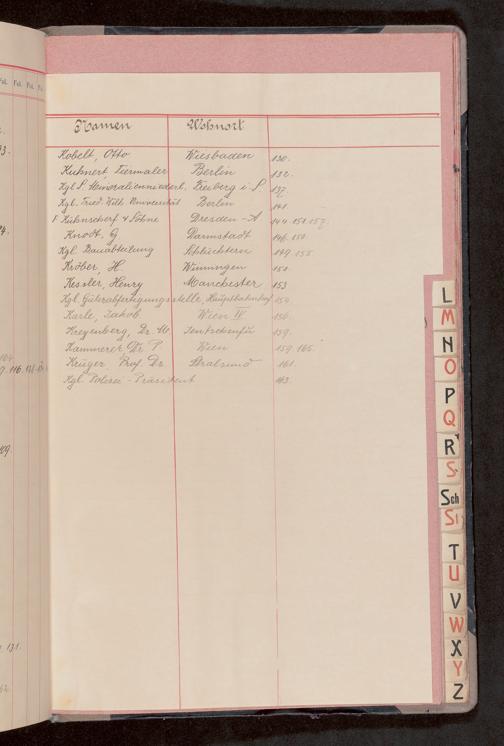 Fol. Fol. Fol.
Namen Wohnort
Kobelt, Otto Wiesbaden 130.
Kuhnert Tiermaler Berlin 132.
Kgl. S. Mineralienniederl. Freiberg i. S. 137.
Kgl. Fried. Wilh. Universität Berlin 141
Kühnscherf & Söhne Dresden-A 144. 151. 157.
Knodt, G Darmstadt 146. 150
Kgl. Bauabteilung Schlüchtern 149 155
Kröber, H 151
Kessler, Henry Manchester 153
Kgl. Güterabfertigungsstelle, Hauptbahnhof 154
Karle, Jakob Wien IV 156.
Kreyenberg, Dr. M. 159.
Kammerer Dr P. Wien 159 165.
Krüger Prof. Dr Stralsund 161.
Kgl. Polizei-Präsident 163.
L
M
N
O
P
Q
R
S
Sch
St
T
U
V
W
X
Y
Z